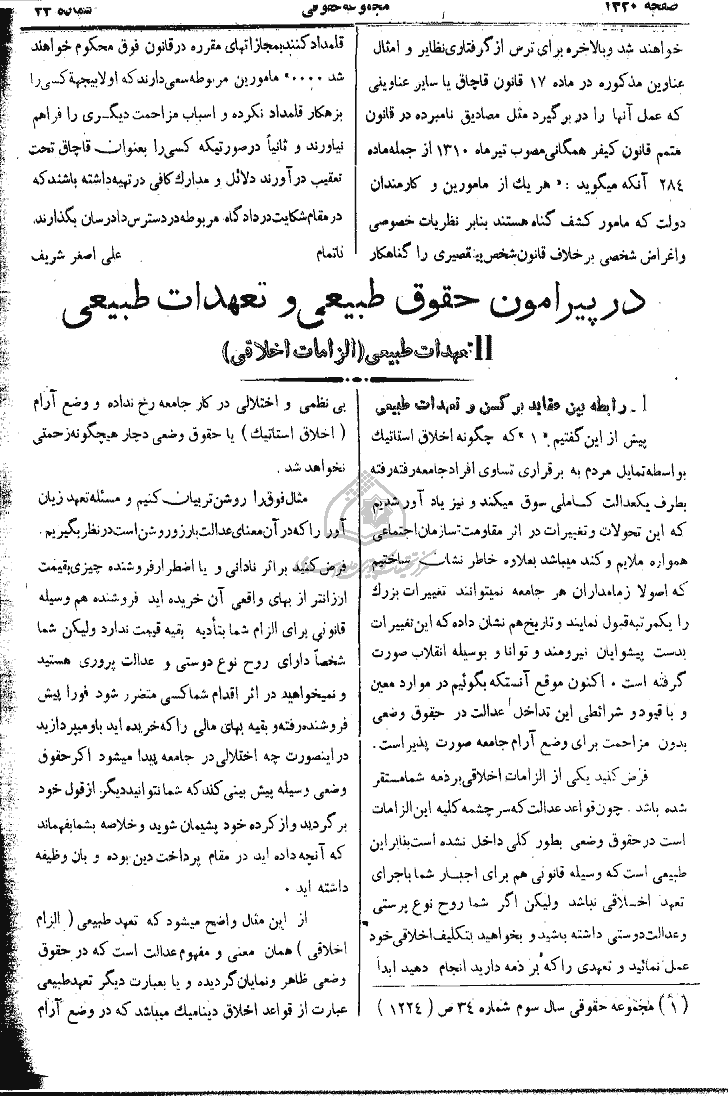 صفحه ۱۳۲۰
مجموعه حقوقی
شماره ۲۳
خواهند شد وبالاخره برای ترس از گرفتاری نظایر و امثال
عناوین مذکوره در ماده ۱۷ قانون قاچاق یا سایر عناوینی
که عمل آنها را در بر گیرد مثل مصادیق نامبرده در قانون
متمم قانون کیفر همگانی مصوب تیرماه ۱۳۱۰ از جمله ماده
۲۸۴ آنکه میگوید : « هر یك از مامورین و کارمندان
دولت که مامور کشف گناه هستند بنابر نظریات خصوصی
و اغراض شخصی برخلاف قانون شخص بیتقصیری را گناهکار
قلمداد کنند بمجازاتهای مقرره در قانون فوق محکوم خواهند
شد ۰۰۰۰» مامورین مربوطه سعی دارند که اولا بیجهة کسی را
بزهکار قلمداد نکرده و اسباب مزاحمت دیگری را فراهم
نیاورند و ثانیاً در صورتیکه کسی را بعنوان قاچاق تحت
تعقیب در آورند دلائل و مدارك کافی در تهیه داشته باشند که
در مقام شکایت در دادگاه مربوطه در دسترس دادرسان بگذارند.
ناتمام علی اصغر شریف
در پیرامون حقوق طبیعی و تعهدات طبیعی
II تعهدات طبیعی (الزامات اخلاقی)
۱ـ رابطه بین عقاید برگسن و تعهدات طبیعی
پیش از این گفتیم «۱» که چگونه اخلاق استاتیك
بواسطه تمایل مردم به برقراری تساوی افراد جامعه رفته رفته
بطرف یکعدالت کاملی سوق میکند و نیز یاد آور شدیم
که این تحولات و تغییرات در اثر مقاومت سازمان اجتماعی
همواره ملایم و کند میباشد بعلاوه خاطر نشان ساختیم
که اصولا زمامداران هر جامعه نمیتوانند تغییرات بزرك
را یکمرتبه قبول نمایند و تاریخ هم نشان داده که این تغییرات
بدست پیشوایان نیرومند و توانا و بوسیله انقلاب صورت
گرفته است ۰ اکنون موقع آنستکه بگوئیم در موارد معین
و با قیود و شرائطی این تداخل عدالت در حقوق وضعی
بدون مزاحمت برای وضع آرام جامعه صورت پذیر است .
فرض کنید یکی از الزامات اخلاقی بر ذمه شما مستقر
شده باشد . چون قواعد عدالت که سرچشمه کلیه این الزامات
است در حقوق وضعی بطور کلی داخل نشده است بنابراین
طبیعی است که وسیله قانونی هم برای اجبار شما باجرای
تعهد اخلاقی نباشد ولیکن اگر شما روح نوع پرستی
و عدالت دوستی داشته باشید و بخواهید بتکلیف اخلاقی خود
عمل نمائید و تعهدی را که بر ذمه دارید انجام دهید ابداً
(۱) مجموعه حقوقی سال سوم شماره ۳۴ ص ( ۱۲۲۴ )
بی نظمی و اختلالی در کار جامعه رخ نداده و وضع آرام
( اخلاق استاتیك ) یا حقوق وضعی دچار هیچگونه زحمتی
نخواهد شد .
مثال فوق را روشن تر بیان کنیم و مسئله تعهد زیان
آور را که در آن معنای عدالت بارز و روشن است در نظر بگیریم .
فرض کنید براثر نادانی و یا اضطرار فروشنده چیزی بقیمت
ارزانتر از بهای واقعی آن خریده اید فروشنده هم وسیله
قانونی برای الزام شما بتأدیه بقیه قیمت ندارد ولیکن شما
شخصاً دارای روح نوع دوستی و عدالت پروری هستید
و نمیخواهید در اثر اقدام شما کسی متضرر شود فورا پیش
فروشنده رفته و بقیه بهای مالی را که خریده اید باو میپردازید
در اینصورت چه اختلالی در جامعه پیدا میشود اگر حقوق
وضعی وسیله پیش بینی کند که شما نتوانید دیگر از قول خود
برگردید و از کرده خود پشیمان شوید و خلاصه بشما بفهماند
که آنچه داده اید در مقام پرداخت دین بوده و بان وظیفه
داشته اید ۰
از این مثال واضح میشود که تعهد طبیعی ( الزام
اخلاقی ) همان معنی و مفهوم عدالت است که در حقوق
وضعی ظاهر و نمایان گردیده و یا بعبارت دیگر تعهد طبیعی
عبارت از قواعد اخلاق دینامیك میباشد که در وضع آرام